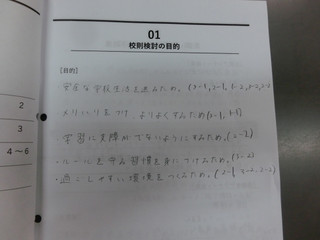 01
校則検討の目的
[目的]
安全な学校生活を送るため、(3-1,2-1,1-2,3-2,2-2
メリハリをつけ、よりよくするため(1-1,1-3)
学習に支障がでないようにするため、(2-2)
・ルールを守る習慣を身につけるため、(3-2)
・過ごしやすい環境をつくるため、(2-1
2
3
4～6